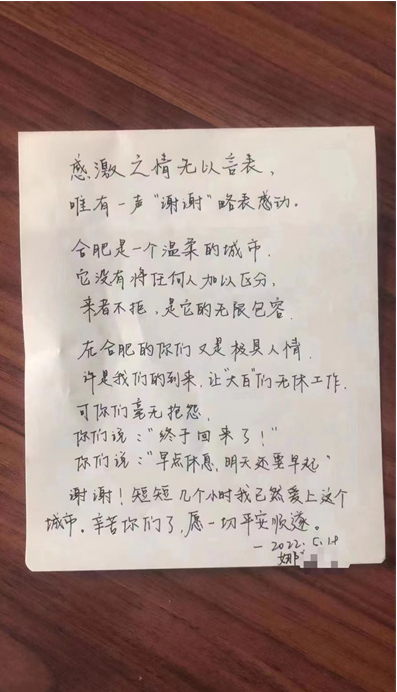 感激之情无以言表,
唯有一声“谢谢”略表感动。
合肥是一个温柔的城市,
它没有将任何人加以区分,
来者不拒,是它的无限包容.
在合肥的你们又是极具人情.
许是我们的到来,让“大白”们无休工作.
可你们毫无抱怨.
你们说:“终于回来了!”
你们说:“早点休息,明天还要早起”
谢谢!短短几个小时我已然爱上这个
城市.辛苦你们了,愿一切平安顺遂。
—2022.5.18